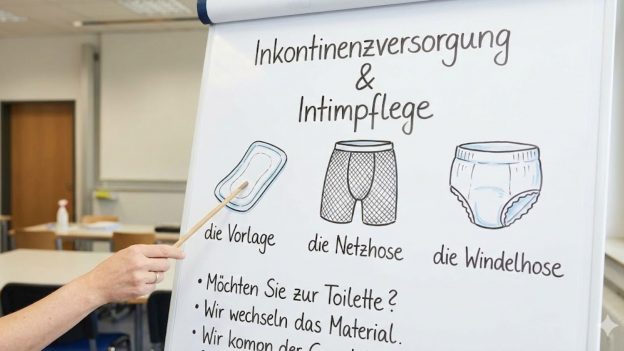 Inkontinenzversorgung
&
Intimpflege
die Vorlage
die Netzhose
die Windelhose
• Möchten Sie zur Toilette?
• Wir wechseln das Material.
• Wir kompn der